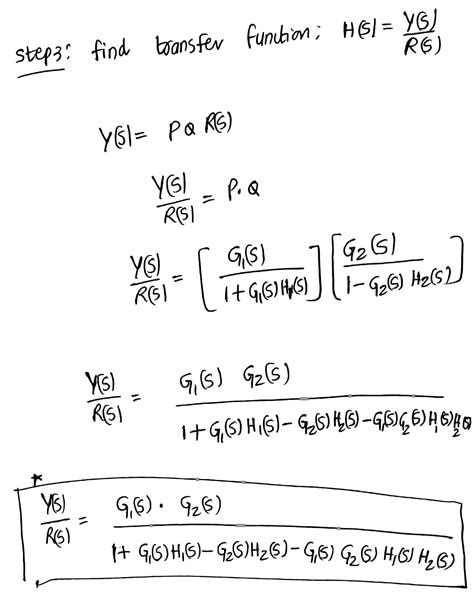 step3: find transfer function; H(s) = Y(s)/R(s)
Y(s) = P Q R(s)
Y(s)/R(s) = P.Q
Y(s)/R(s) = [G₁(s)/1+G₁(s)H₁(s)] [G₂(s)/1-G₂(s) H₂(s)]
Y(s)/R(s) = G₁(s) G₂(s)/1+G₁(s)H₁(s)-G₂(s)H₂(s)-G₁(s)G₂(s)H₁(s)H₂(s)
*
Y(s)/R(s) = G₁(s) · G₂(s)/1+ G₁(s)H₁(s)-G₂(s)H₂(s)-G₁(s) G₂(s) H₁(s) H₂(s)